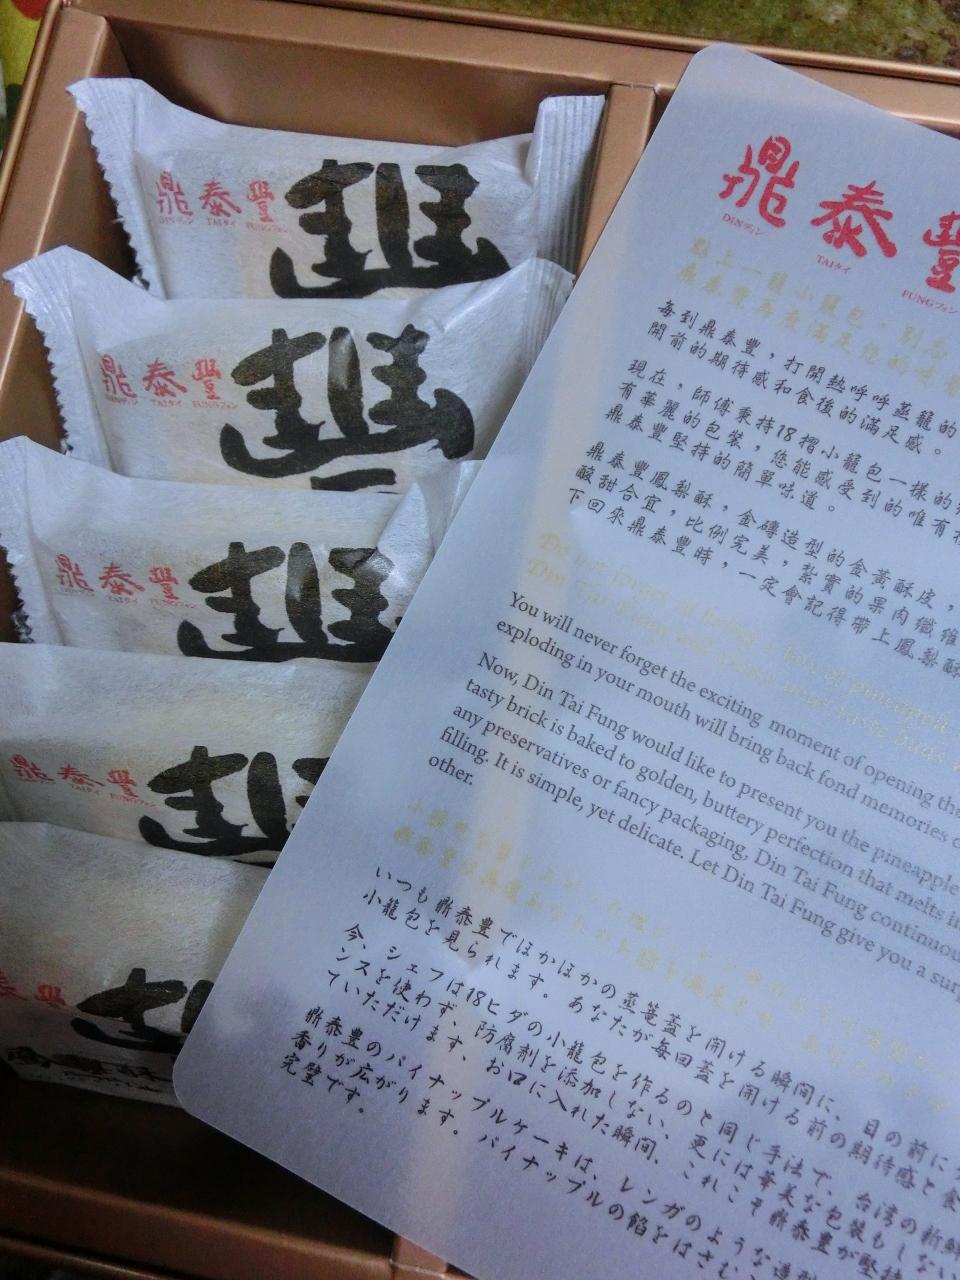 鼎泰豐
DINディン TAIタイ FUNGフォン
豐
鼎泰豐
DINディン TAIタイ FUNGフォン
豐
鼎泰豐
豐
鼎泰豐
豐
鼎泰豐
DINディン
TAIタイ
FUNGフォン
點上一籠小籠包,別忘
每到鼎泰豐,打開熱呼呼蒸籠的
開前的期待感和食後的滿足感。
現在,師傅秉持18摺小籠包一樣的
有華麗的包裝,您能感受到的唯有
鼎泰豐堅持的簡單味道。
鼎泰豐鳳梨酥,金磚造型的金黃酥皮,
酸甜合宜,比例完美,紮實的果肉纖維
下回來鼎泰豐時,一定會記得帶上鳳梨酥
Do not forget to bring a box of pineapple
You will never forget the exciting moment of opening the
exploding in your mouth will bring back fond memories o
Now, Din Tai Fung would like to present you the pineapple
tasty brick is baked to golden, buttery perfection that melts in
any preservatives or fancy packaging, Din Tai Fung continuou
filling. It is simple, yet delicate. Let Din Tai Fung give you a surp
other.
いつも鼎泰豐でほかほかの蒸篭蓋を開ける瞬間に、目の前に
小籠包を見られます。あなたが毎回蓋を開ける前の期待感と食
今、シェフは18ヒダの小籠包を作るのと同じ手法で、台湾の新鮮
ンスを使わず、防腐剤を添加しない、更には華美な包装もしない
ていただけます、お口に入れた瞬間、これこそ鼎泰豐が堅持
鼎泰豐のパイナップルケーキは、レンガのような造型
香りが広がります。パイナップルの餡をはさむ
完璧です。